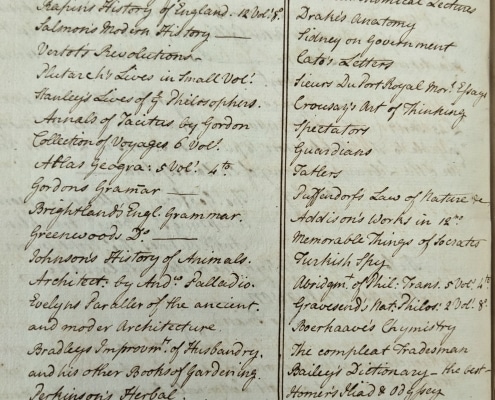 Rapin's History of England. 12 Vol.s 8o.
Salmon's Modern History —
Vertot's Revolutions
Plutarch's Lives in Small Vol.s
Stanley's Lives of ye. Philosophers.
Annals of Tacitus by Gordon
Collection of Voyages 6 Vol.s
Atlas Geogra: 5 Vol.s 4to.
Gordons Gramar —
Brightland's Engl. Grammar.
Greenwoods Do —
Johnson's History of Animals.
Architect. by Andw. Palladio.
Evelyns Paraller of the ancient.
and moder Architecture
Bradley's Improvmt. of Husbandry.
and his other Books of Gardening.
Perkinson's Herbal
Lectures
Drake's Anatomy
Sidney on Government
Cato's Letters
Sieurs Du Port Royal Morl. Essays
Crousay's Art of Thinking
Spectators
Guardians
Tatlers
Puffendorf's Law of Nature &c
Addison's Works in 12mo.
Memorable Things of Socrates
Turkish Spy
Abridgmt. of Phil: Trans. 5 Vol.s 4to
Gravesend's Nat. Philos: 2 Vol. 8o.
Boerhaave's Chymistry
The compleat Tradesman
Bailey's Dictionary — the best —
Homer's Iliad & Odyssey